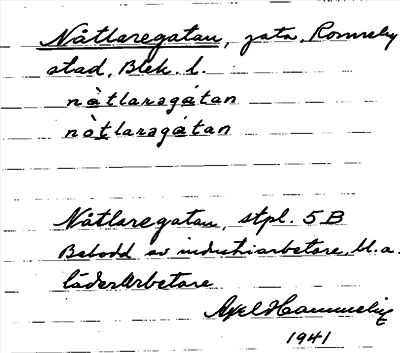 Nåtlaregatan, gata, Ronneby
stad, Blek. l.
nåtlaragátan
nåtlaragátan
Nåtlaregatan, stpl. 5 B
Bebodd av industriarbetare, bl. a.
läderarbetare
Axel Hammelin
1941